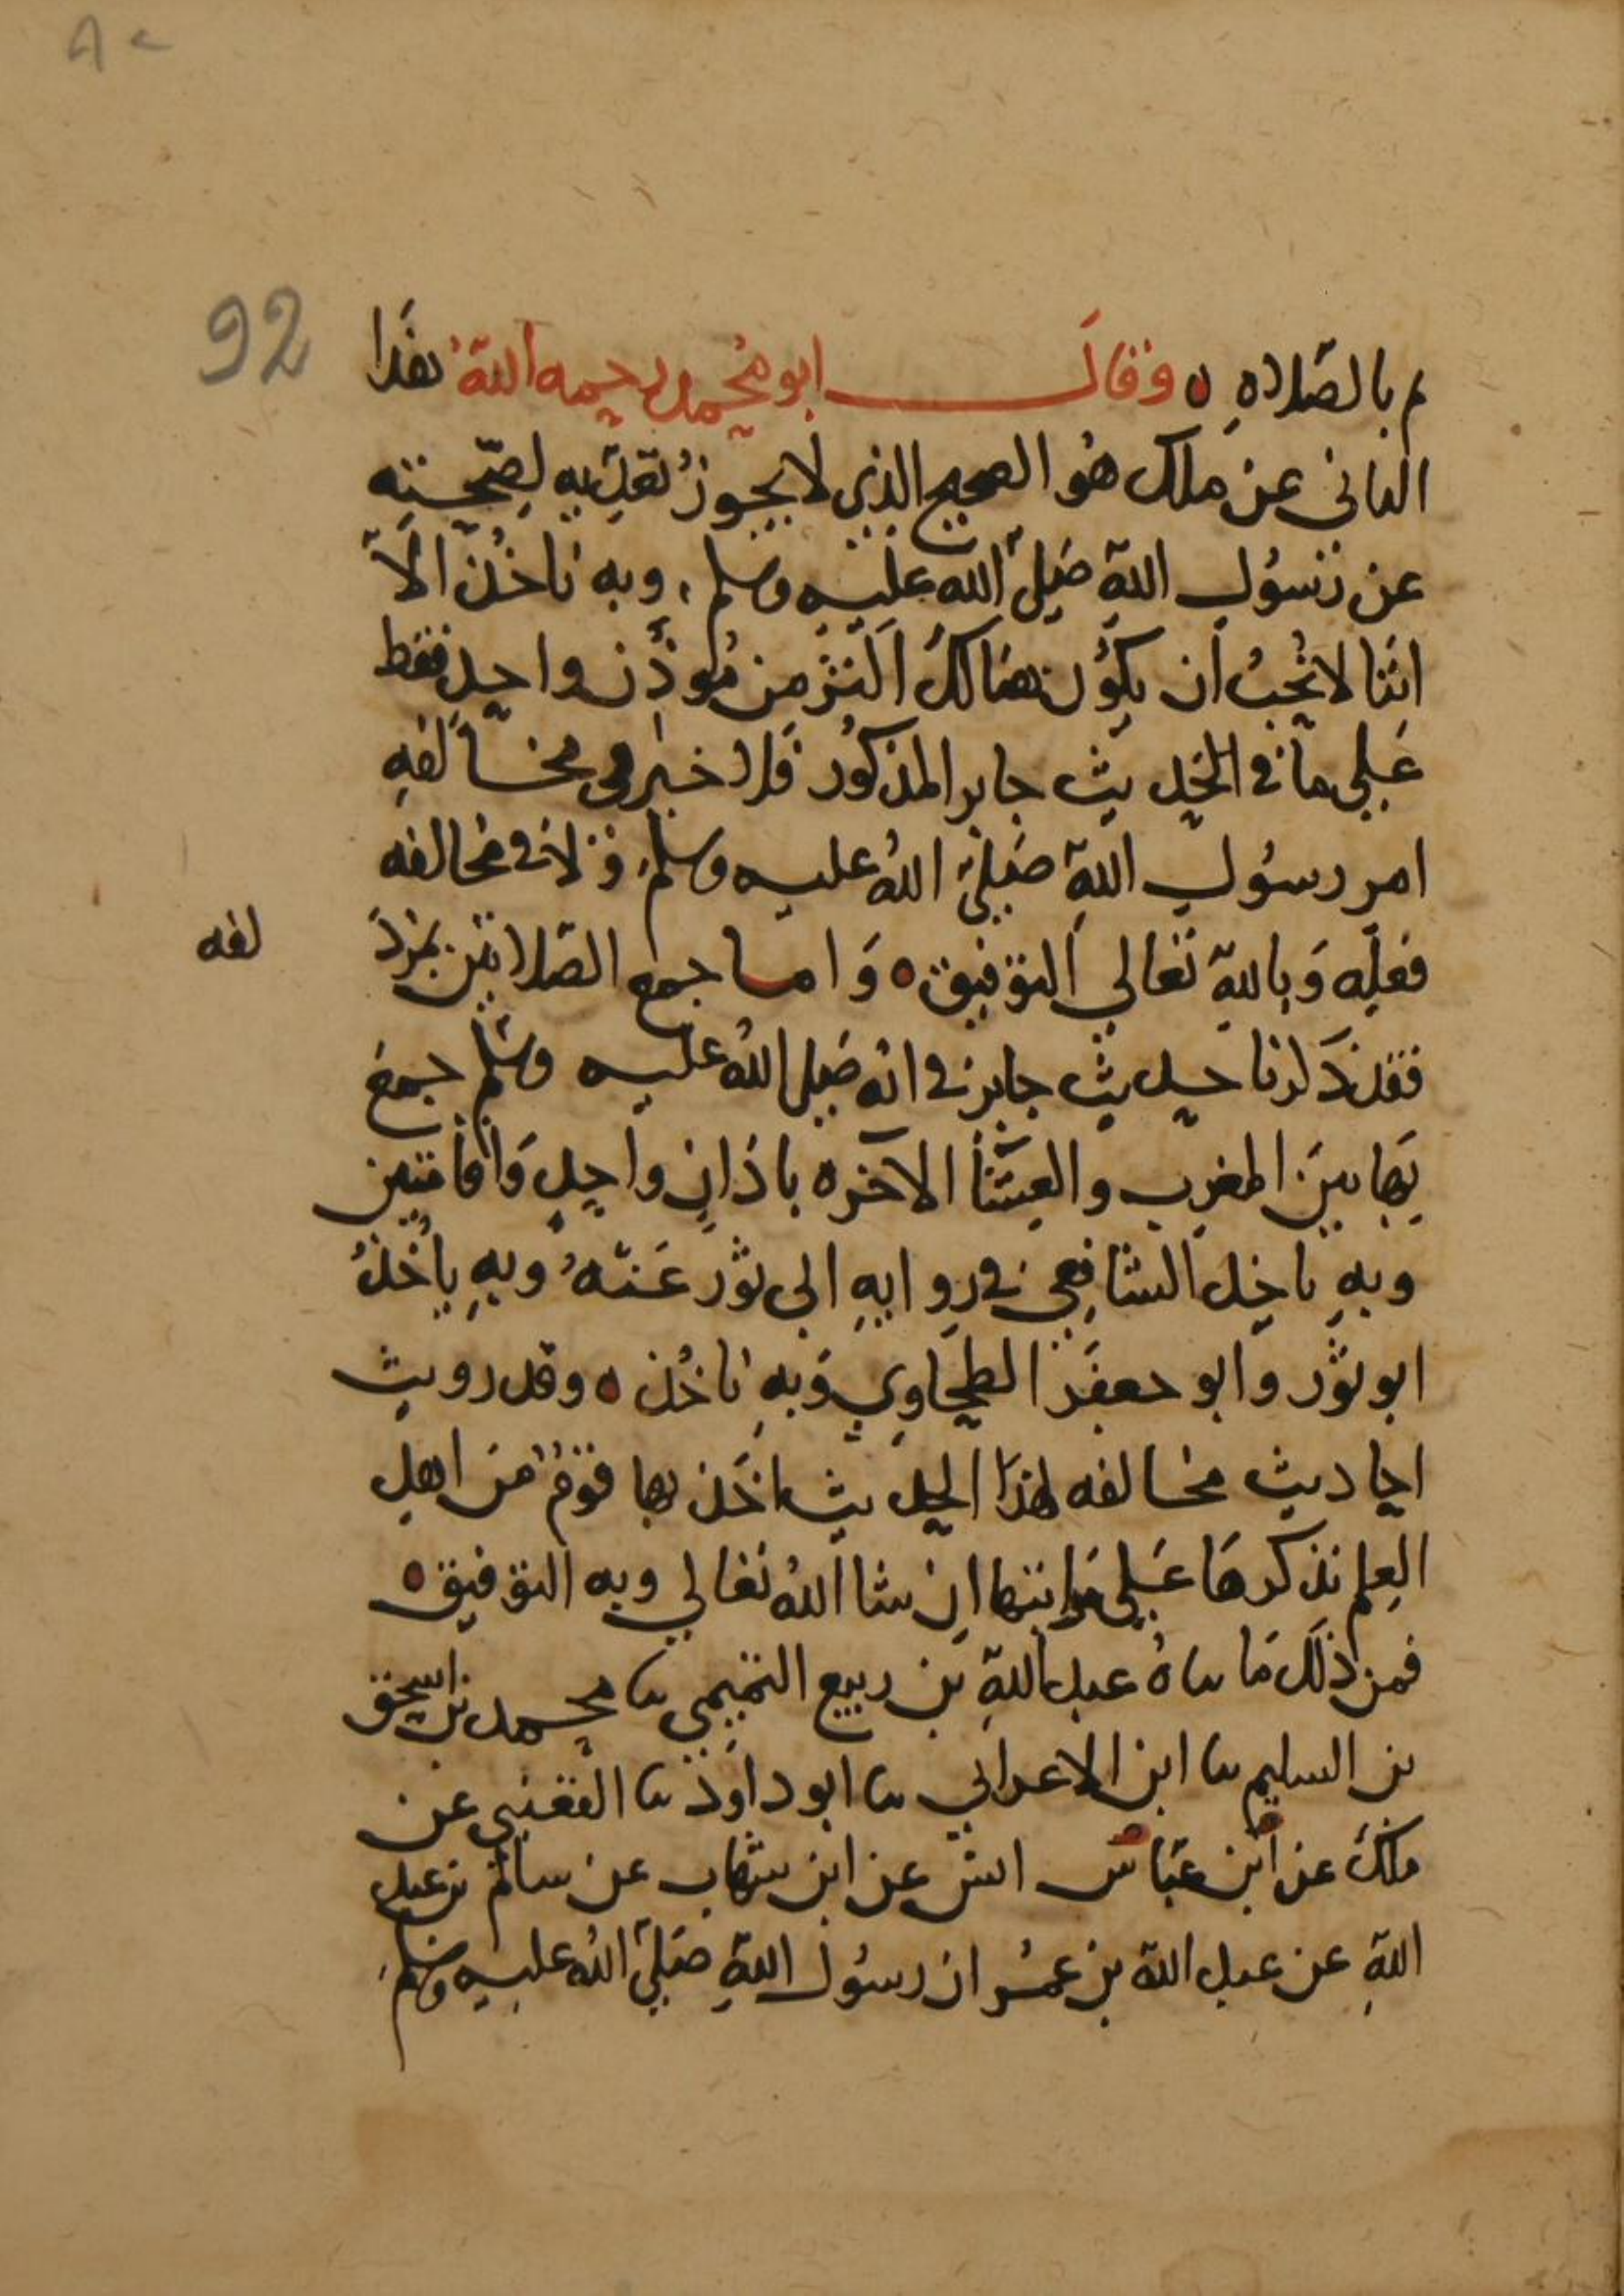 92
م بالصلاه ٥ وقال ابو محمد رحمه الله هذا
الثاني عن ملك هو الصحيح الذي لا يجوز تعديه لصحته
عن رسول الله صلى الله عليه وسلم، وبه ناخذ الا
اننا لا نحب ان يكون هنالك اكثر من موذن واحد فقط
على ما في الحديث جابر المذكور فلا خير في مخالفه
امر رسول الله صلى الله عليه وسلم، ولا في مخالفه
فعله وبالله تعالى التوفيق ٥ واما جمع الصلاتين بمزد
لفه
فقد ذكرنا حديث جابر في انه صلى الله عليه وسلم جمع
بها بين المغرب والعشا الآخره باذان واحد واقامتين
وبه ياخذ الشافعي في روايه ابي ثور عنه وبه ياخذ
ابو ثور وابو جعفر الطحاوي وبه ناخذ ٥ وقد رويت
احاديث مخالفه لهذا الحديث اخذ بها قوم من اهل
العلم نذكرها على مراتبها ان شا الله تعالى وبه التوفيق ٥
فمن ذلك ما ثناه عبد الله بن ربيع التميمي ثنا محمد بن اسحق
بن السليم ثنا ابن الاعرابي ثنا ابو داود ثنا القعنبي عن
ملك عن ابن عباس انس عن ابن شهاب عن سالم بن عبد
الله عن عبد الله بن عمر ان رسول الله صلى الله عليه وسلم